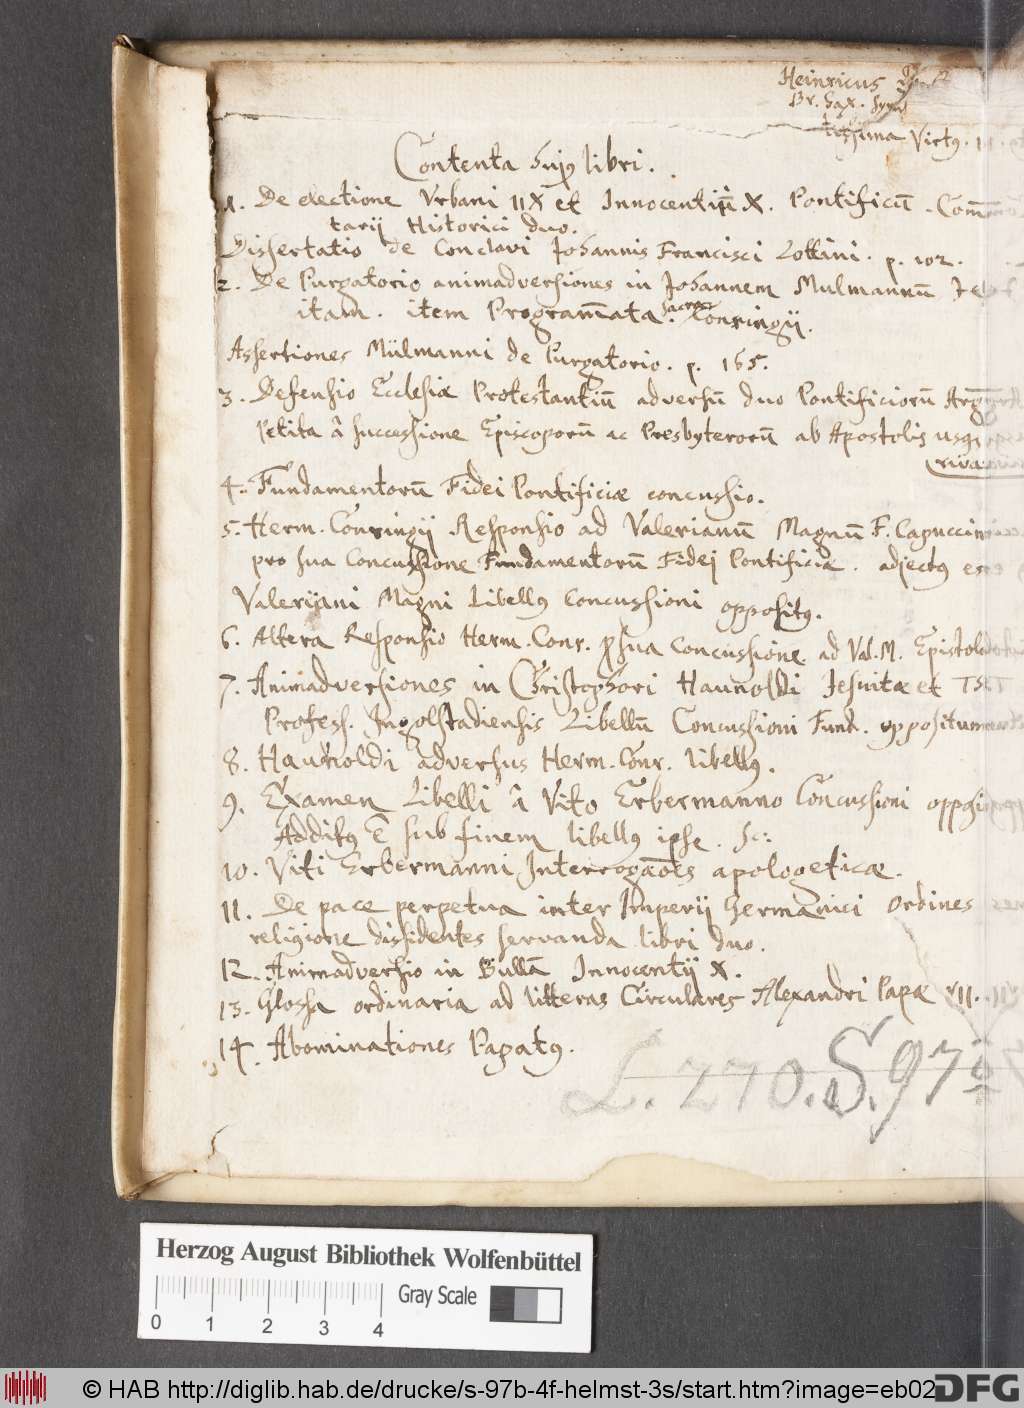 Heinricus
Br. Sax.
Virtꝰ.
Contenta hujꝰ libri.
1. De electione Vrbani IIX et Innocentiū X. Pontificū. Com̄en
tarij Historici duo.
Dissertatio de Conclavi Johannis Francisci Lottini. p. 102.
2. De Purgatorio animadversiones in Johannem Mulmannū Jesu
itam. item Program̄ata sacra Conringij.
Assertiones Mülmanni de Purgatorio. p. 165.
3. Defensio Ecclesiæ Protestantiū adversū duo Pontificiorū Argum
Petita â successione Episcoporū ac Presbyterorū ab Apostolis usqꝫ
rivat
4. Fundamentorū Fidei Pontificiæ concussio.
5. Herm. Conringij Responsio ad Valerianū Magnū F. Capuccin
pro sua Concussione Fundamentorū Fidej Pontificiæ. adjectꝰ est
Valerijani Magni Libellꝰ Concussioni oppositꝰ.
6. Altera Responsio Herm. Conr. ꝓ sua Concussione ad Val. M. Epistol
7. Animadversiones in Christophori Haunoldi Jesuitæ et
Profess. Ingolstadiensis Libellū Concussioni Fund. oppositum
8. Haunoldi adversus Herm. Conr. libellꝰ.
9. Examen Libelli â Vito Erbermanno Concussioni
Additꝰ ē sub finem libellꝰ ipse. sc:
10. Viti Erbermanni Interrogãoēs apologeticæ.
11. De pace perpetua inter Imperij Germanici Ordines
religione dissidentes servanda libri duo.
12. Animadversio in Bullā Innocentij X.
13. Glossa ordinaria ad litteras Circulares Alexandri Papæ VII.
14. Abominationes Papatꝰ.
L. 270. S. 97
Herzog August Bibliothek Wolfenbüttel
Gray Scale
0 1 2 3 4
© HAB http://diglib.hab.de/drucke/s-97b-4f-helmst-3s/start.htm?image=eb02
DFG